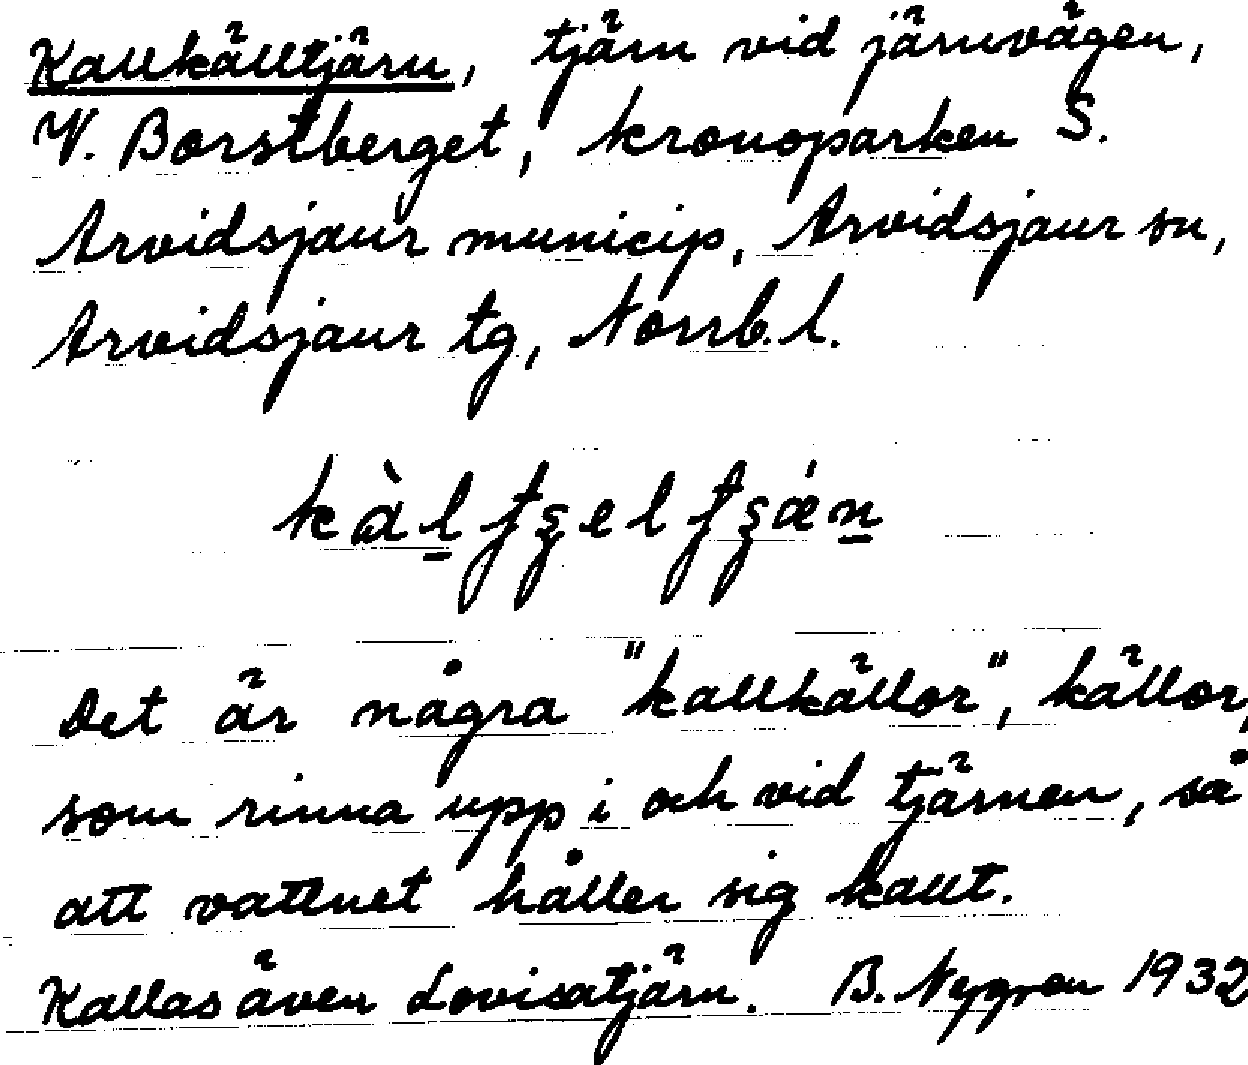 Kallkälltjärn, tjärn vid järnvägen,
V. Borstberget, kronoparken S.
Arvidsjaur municip, Arvidsjaur sn,
Arvidsjaur tg, Norrb. l.
Det är några "kallkällor", källor,
som rinna upp i och vid tjärnen, så
att vattnet håller sig kallt.
Kallas även Lovisatjärn. B. Nygren 1932